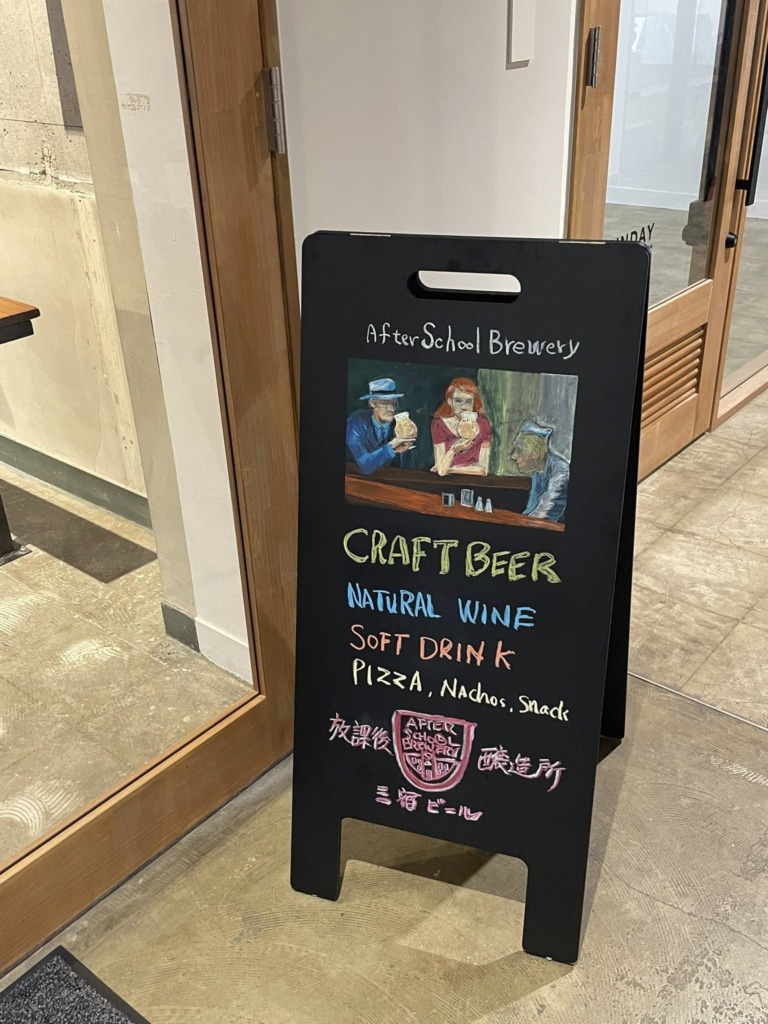 After School Brewery
CRAFT BEER
NATURAL WINE
SOFT DRINK
PIZZA, Nachos, Snack
放課後
AFTER
SCHOOL
BREWERY
醸造所
三宿ビール